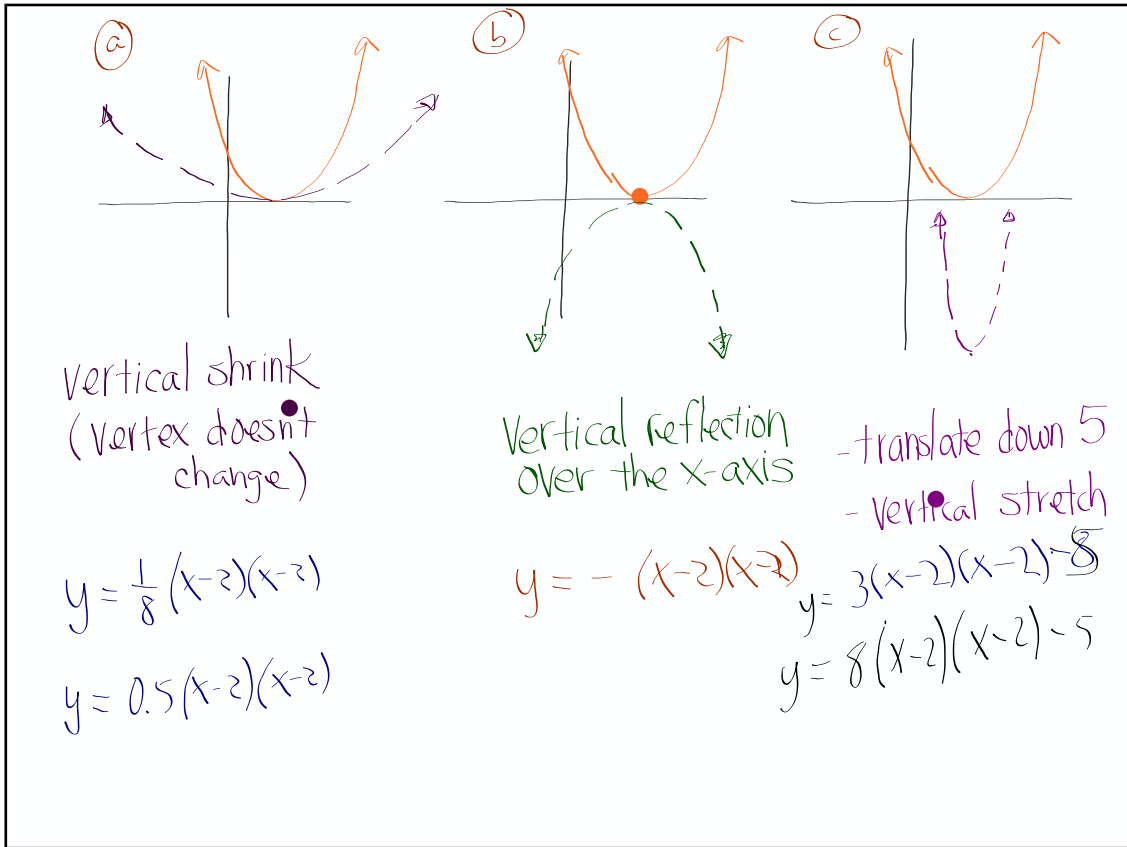 a
b
c
vertical shrink
(vertex doesn't
change)
y = 1/8 (x-2)(x-2)
y = 0.5(x-2)(x-2)
Vertical reflection
over the x-axis
y = - (x-2)(x-2)
- translate down 5
- vertical stretch
y = 3(x-2)(x-2) - 5
y = 8(x-2)(x-2) - 5